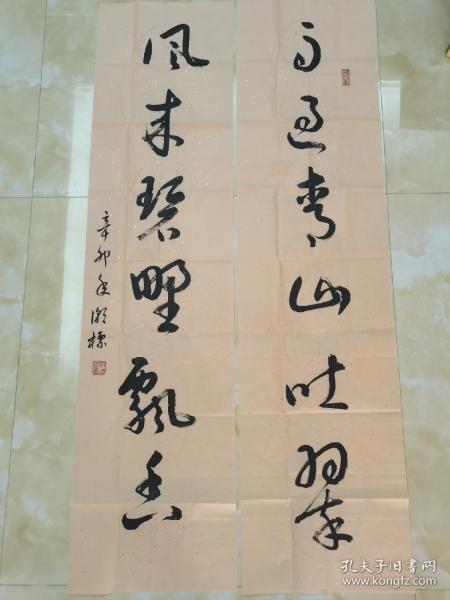 雨过青山吐翠
风来碧野飘香
辛卯年
孔夫子旧书网
www.kongfz.com